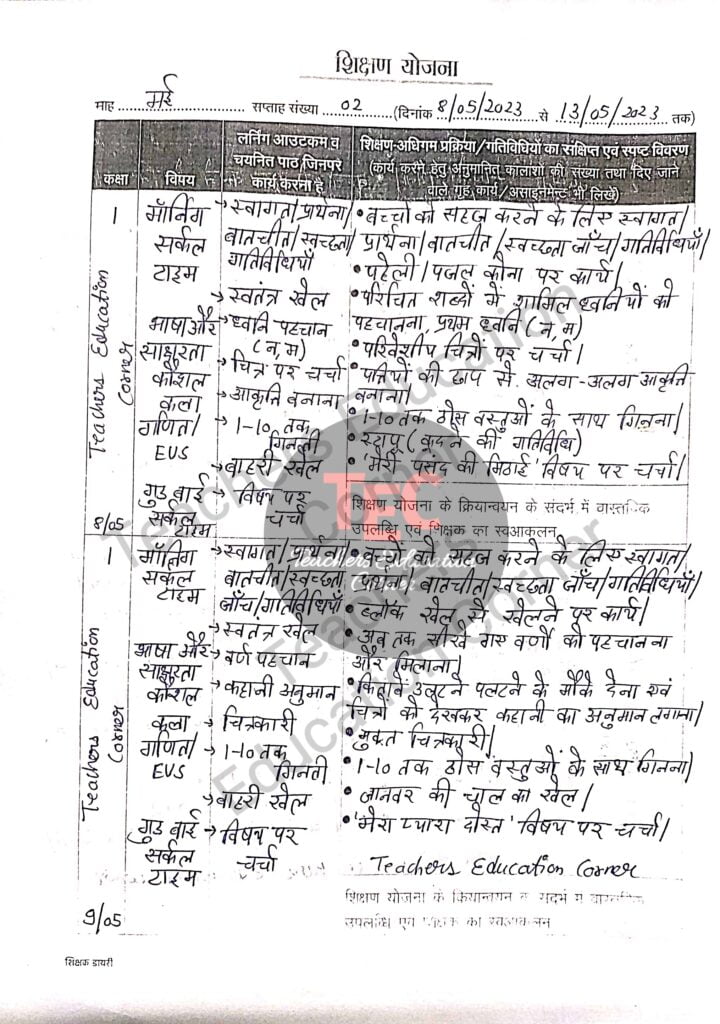 शिक्षण योजना
माह मई सप्ताह संख्या 02 (दिनांक 8/05/2023 से 13/05/2023 तक)
कक्षा
विषय
लर्निंग आउटकम व
चयनित पाठ जिनपर
कार्य करना है
शिक्षण-अधिगम प्रक्रिया/गतिविधियों का संक्षिप्त एवं स्पष्ट विवरण
(कार्य करने हेतु अनुमानित कालांशों की संख्या तथा दिए जाने
वाले गृह कार्य/असाइनमेन्ट भी लिखें)
1
Teachers Education
Corner
8/05
मॉर्निंग
सर्कल
टाइम
भाषा और
साक्षरता
कौशल
कला
गणित/
EVS
गुड बाई
सर्कल
टाइम
→ स्वागत/प्रार्थना/
बातचीत/स्वच्छता/
गतिविधियाँ
→ स्वतंत्र खेल
→ ध्वनि पहचान
(न, म)
→ चित्र पर चर्चा
→ आकृति बनाना
→ 1-10 तक
गिनती
→ बाहरी खेल
→ विषय पर
चर्चा
• बच्चों को सहज करने के लिए स्वागत/
प्रार्थना/बातचीत/स्वच्छता जाँच/गतिविधियाँ/
• पहेली/पजल कोना पर कार्य।
• परिचित शब्दों में शामिल ध्वनियों को
पहचानना, प्रथम ध्वनि (न, म)
• परिवेशीय चित्रों पर चर्चा।
• पत्तियों की छाप से अलग-अलग आकृति
बनाना।
• 1-10 तक ठोस वस्तुओं के साथ गिनना।
• स्टापू (कूदने की गतिविधि)
• 'मेरी पसंद की मिठाई' विषय पर चर्चा।
शिक्षण योजना के क्रियान्वयन के संदर्भ में वास्तविक
उपलब्धि एवं शिक्षक का स्वआकलन
1
Teachers Education
Corner
9/05
मॉर्निंग
सर्कल
टाइम
भाषा और
साक्षरता
कौशल
कला
गणित/
EVS
गुड बाई
सर्कल
टाइम
→ स्वागत/प्रार्थना/
बातचीत/स्वच्छता
जाँच/गतिविधियाँ
→ स्वतंत्र खेल
→ वर्ण पहचान
→ कहानी अनुमान
→ चित्रकारी
→ 1-10 तक
गिनती
→ बाहरी खेल
→ विषय पर
चर्चा
• बच्चों को सहज करने के लिए स्वागत/
प्रार्थना/बातचीत/स्वच्छता जाँच/गतिविधियाँ/
• ब्लॉक खेल से खेलने पर कार्य।
• अब तक सीखे गए वर्णों को पहचानना
और मिलाना।
• किताबें उलटने पलटने के मौके देना एवं
चित्रों को देखकर कहानी का अनुमान लगाना।
• मुक्त चित्रकारी।
• 1-10 तक ठोस वस्तुओं के साथ गिनना।
• जानवर की चाल का खेल।
• 'मेरा प्यारा दोस्त' विषय पर चर्चा।
Teachers Education Corner
शिक्षण योजना के क्रियान्वयन के संदर्भ में वास्तविक
उपलब्धि एवं शिक्षक का स्वआकलन
शिक्षक डायरी
TEC
Teachers Education
Corner
Teachers Education Corner
Teachers Education Corner